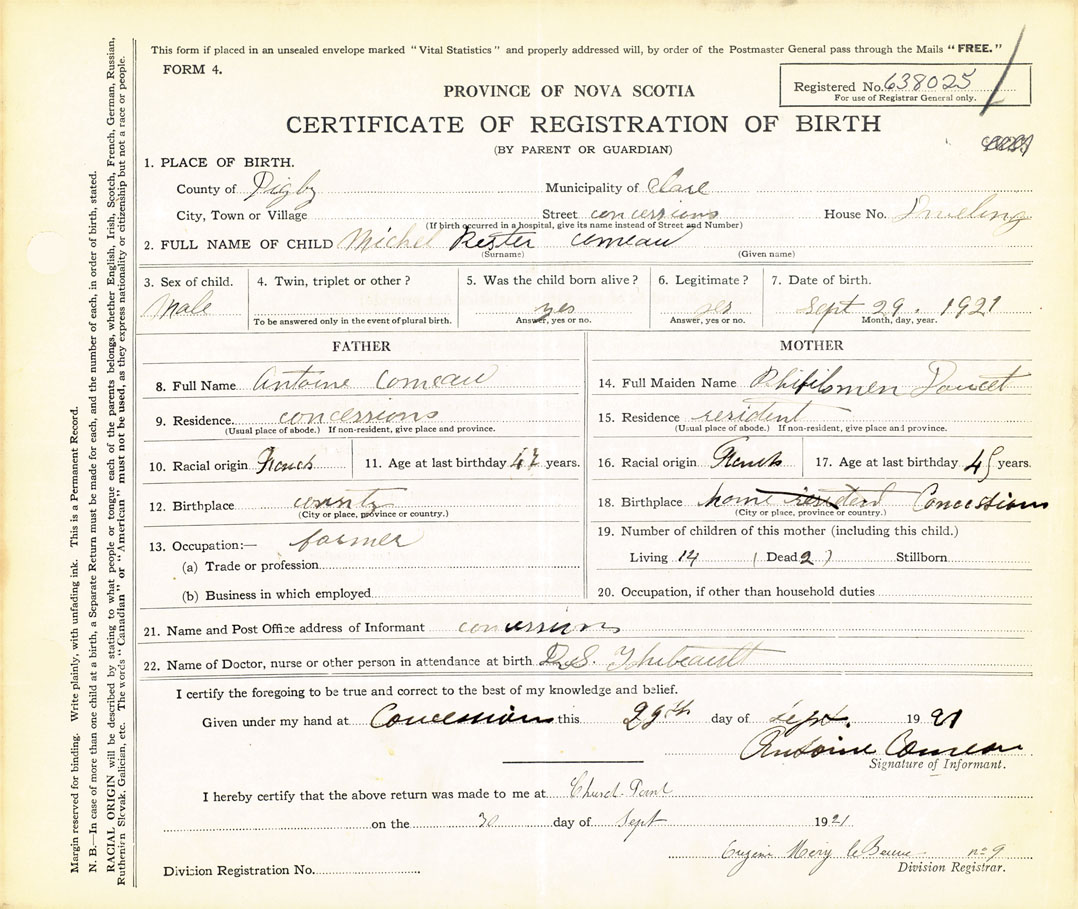 This form if placed in an unsealed envelope marked "Vital Statistics" and properly addressed will, by order of the Postmaster General pass through the Mails "FREE."
FORM 4.
Registered No. 638025
For use of Registrar General only.
PROVINCE OF NOVA SCOTIA
CERTIFICATE OF REGISTRATION OF BIRTH
(BY PARENT OR GUARDIAN)
1. PLACE OF BIRTH.
County of Digby Municipality of Clare
City, Town or Village Street concessions House No. Dweling
(If birth occurred in a hospital, give its name instead of Street and Number)
2. FULL NAME OF CHILD Michel comeau
(Surname) (Given name)
3. Sex of child. Male
4. Twin, triplet or other?
To be answered only in the event of plural birth.
5. Was the child born alive? yes
Answer, yes or no.
6. Legitimate? yes
Answer, yes or no.
7. Date of birth. Sept 29. 1921
Month, day, year.
FATHER
8. Full Name Antoine Comeau
9. Residence. concessions
(Usual place of abode.) If non-resident, give place and province.
10. Racial origin French 11. Age at last birthday 47 years.
12. Birthplace county
(City or place, province or country.)
13. Occupation:— farmer
(a) Trade or profession
(b) Business in which employed
MOTHER
14. Full Maiden Name Doucet
15. Residence resident
(Usual place of abode.) If non-resident, give place and province.
16. Racial origin French 17. Age at last birthday 45 years.
18. Birthplace home resident Concessions
(City or place, province or country.)
19. Number of children of this mother (including this child.)
Living 14 (Dead 2) Stillborn
20. Occupation, if other than household duties
21. Name and Post Office address of Informant concessions
22. Name of Doctor, nurse or other person in attendance at birth Thibeault
I certify the foregoing to be true and correct to the best of my knowledge and belief.
Given under my hand at Concession this 29th day of sept. 1921
Antoine Comeau
Signature of Informant.
I hereby certify that the above return was made to me at Church Point
on the 30 day of Sept 1921
no 9
Division Registration No. Division Registrar.
Margin reserved for binding. Write plainly, with unfading ink. This is a Permanent Record.
N. B.—In case of more than one child at a birth, a Separate Return must be made for each, and the number of each, in order of birth, stated.
RACIAL ORIGIN will be described by stating to what people or tongue each of the parents belongs, whether English, Irish, Scotch, French, German, Russian,
Ruthenian Slovak, Galician, etc. The words "Canadian" or "American" must not be used, as they express nationality or citizenship but not a race or people.